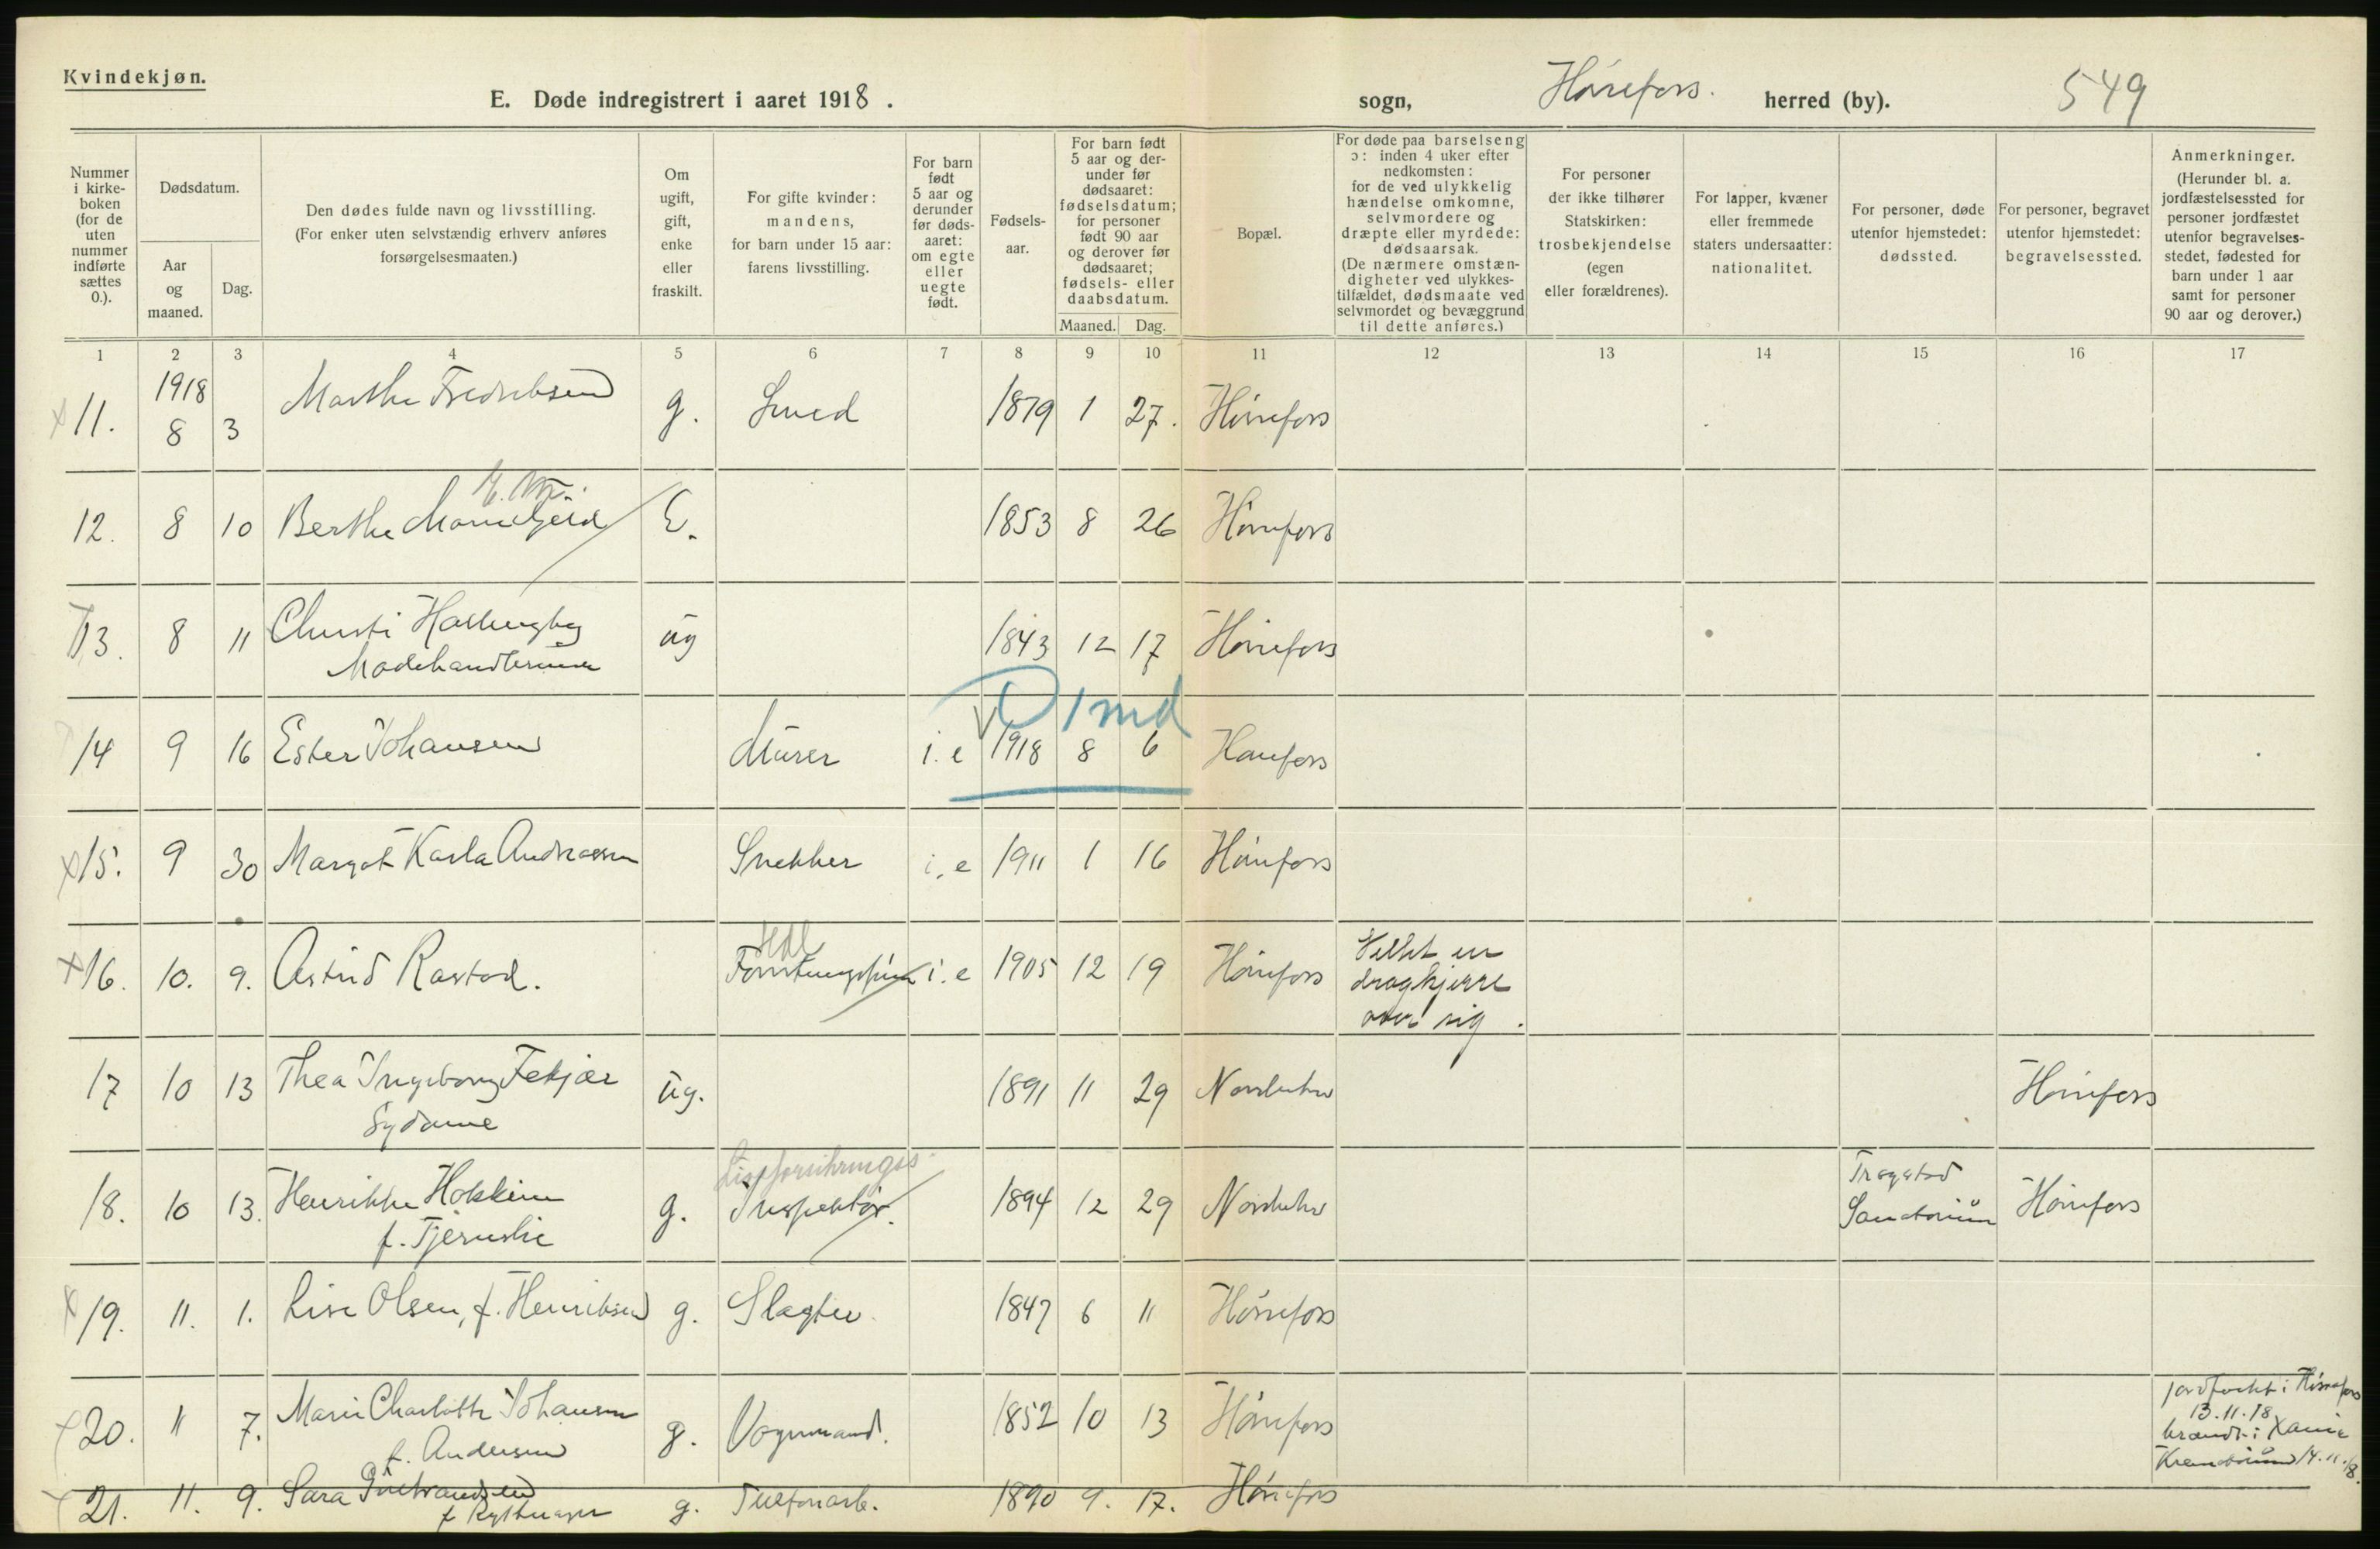 Kvindekjøn.
E. Døde indregistrert i aaret 1918.
sogn, Hønefoss. herred (by). 549
Nummer i kirke-boken (for de uten nummer indførte sættes 0.).
Dødsdatum.
Aar og maaned.
Dag.
Den dødes fulde navn og livsstilling.
(For enker uten selvstændig erhverv anføres forsørgelsesmaaten.)
Om ugift, gift, enke eller fraskilt.
For gifte kvinder: mandens, for barn under 15 aar: farens livsstilling.
For barn født 5 aar og derunder før døds-aaret: om egte eller uegte født.
Fødsels-aar.
For barn født 5 aar og der-under før dødsaaret: fødselsdatum; for personer født 90 aar og derover før dødsaaret; fødsels- eller daabsdatum.
Maaned.
Dag.
Bopæl.
For døde paa barselseng ɔ: inden 4 uker efter nedkomsten: for de ved ulykkelig hændelse omkomne, selvmordere og dræpte eller myrdede: dødsaarsak.
(De nærmere omstæn-digheter ved ulykkes-tilfældet, dødsmaate ved selvmordet og bevæggrund til dette anføres.)
For personer der ikke tilhører Statskirken: trosbekjendelse (egen eller forældrenes).
For lapper, kvæner eller fremmede staters undersaatter: nationalitet.
For personer, døde utenfor hjemstedet: dødssted.
For personer, begravet utenfor hjemstedet: begravelsessted.
Anmerkninger.
(Herunder bl. a. jordfæstelsessted for personer jordfæstet utenfor begravelses-stedet, fødested for barn under 1 aar samt for personer 90 aar og derover.)
1 2 3 4 5 6 7 8 9 10 11 12 13 14 15 16 17
1918
11. 8 3 Marthe Fredriksen g. Smed 1879 1 27. Hønefoss
12. 8 10 Berthe E. 1853 8 26 Hønefoss
13. 8 11 Christi ug 1843 12 17 Hønefoss
Modehandlerinne
1 md
14 9 16 Ester Johansen Murer i. e 1918 8 6 Hønefoss
15. 9 30 Margot Karla Andreassen Snekker i. e 1911 1 16 Hønefoss
16. 10. 9. Astrid Rastad. i. e 1905 12 19 Hønefoss Veltet en
dragkjerre
over sig.
17 10 13 Thea Ingeborg Fekjær ug. 1891 11 29 Norderhov Hønefoss
Sydame
Livsforsikrings
18. 10 13. Henrikke g. Inspektør. 1894 12 29 Norderhov Sanatorium Hønefoss
f. Tjernslie
19. 11. 1. Lise Olsen, f. Henriksen g. Slagter 1847 6 11 Hønefoss
20. 11 7. Marie Charlotte Johansen g. Vognmand. 1852 10 13 Hønefoss
f. Andersen
jordfæstet i Hønefoss
13.11.18
brændt i
Krematorium 14.11.18.
21. 11. 9. Sara g. Telefonarb. 1890 9. 17. Hønefoss